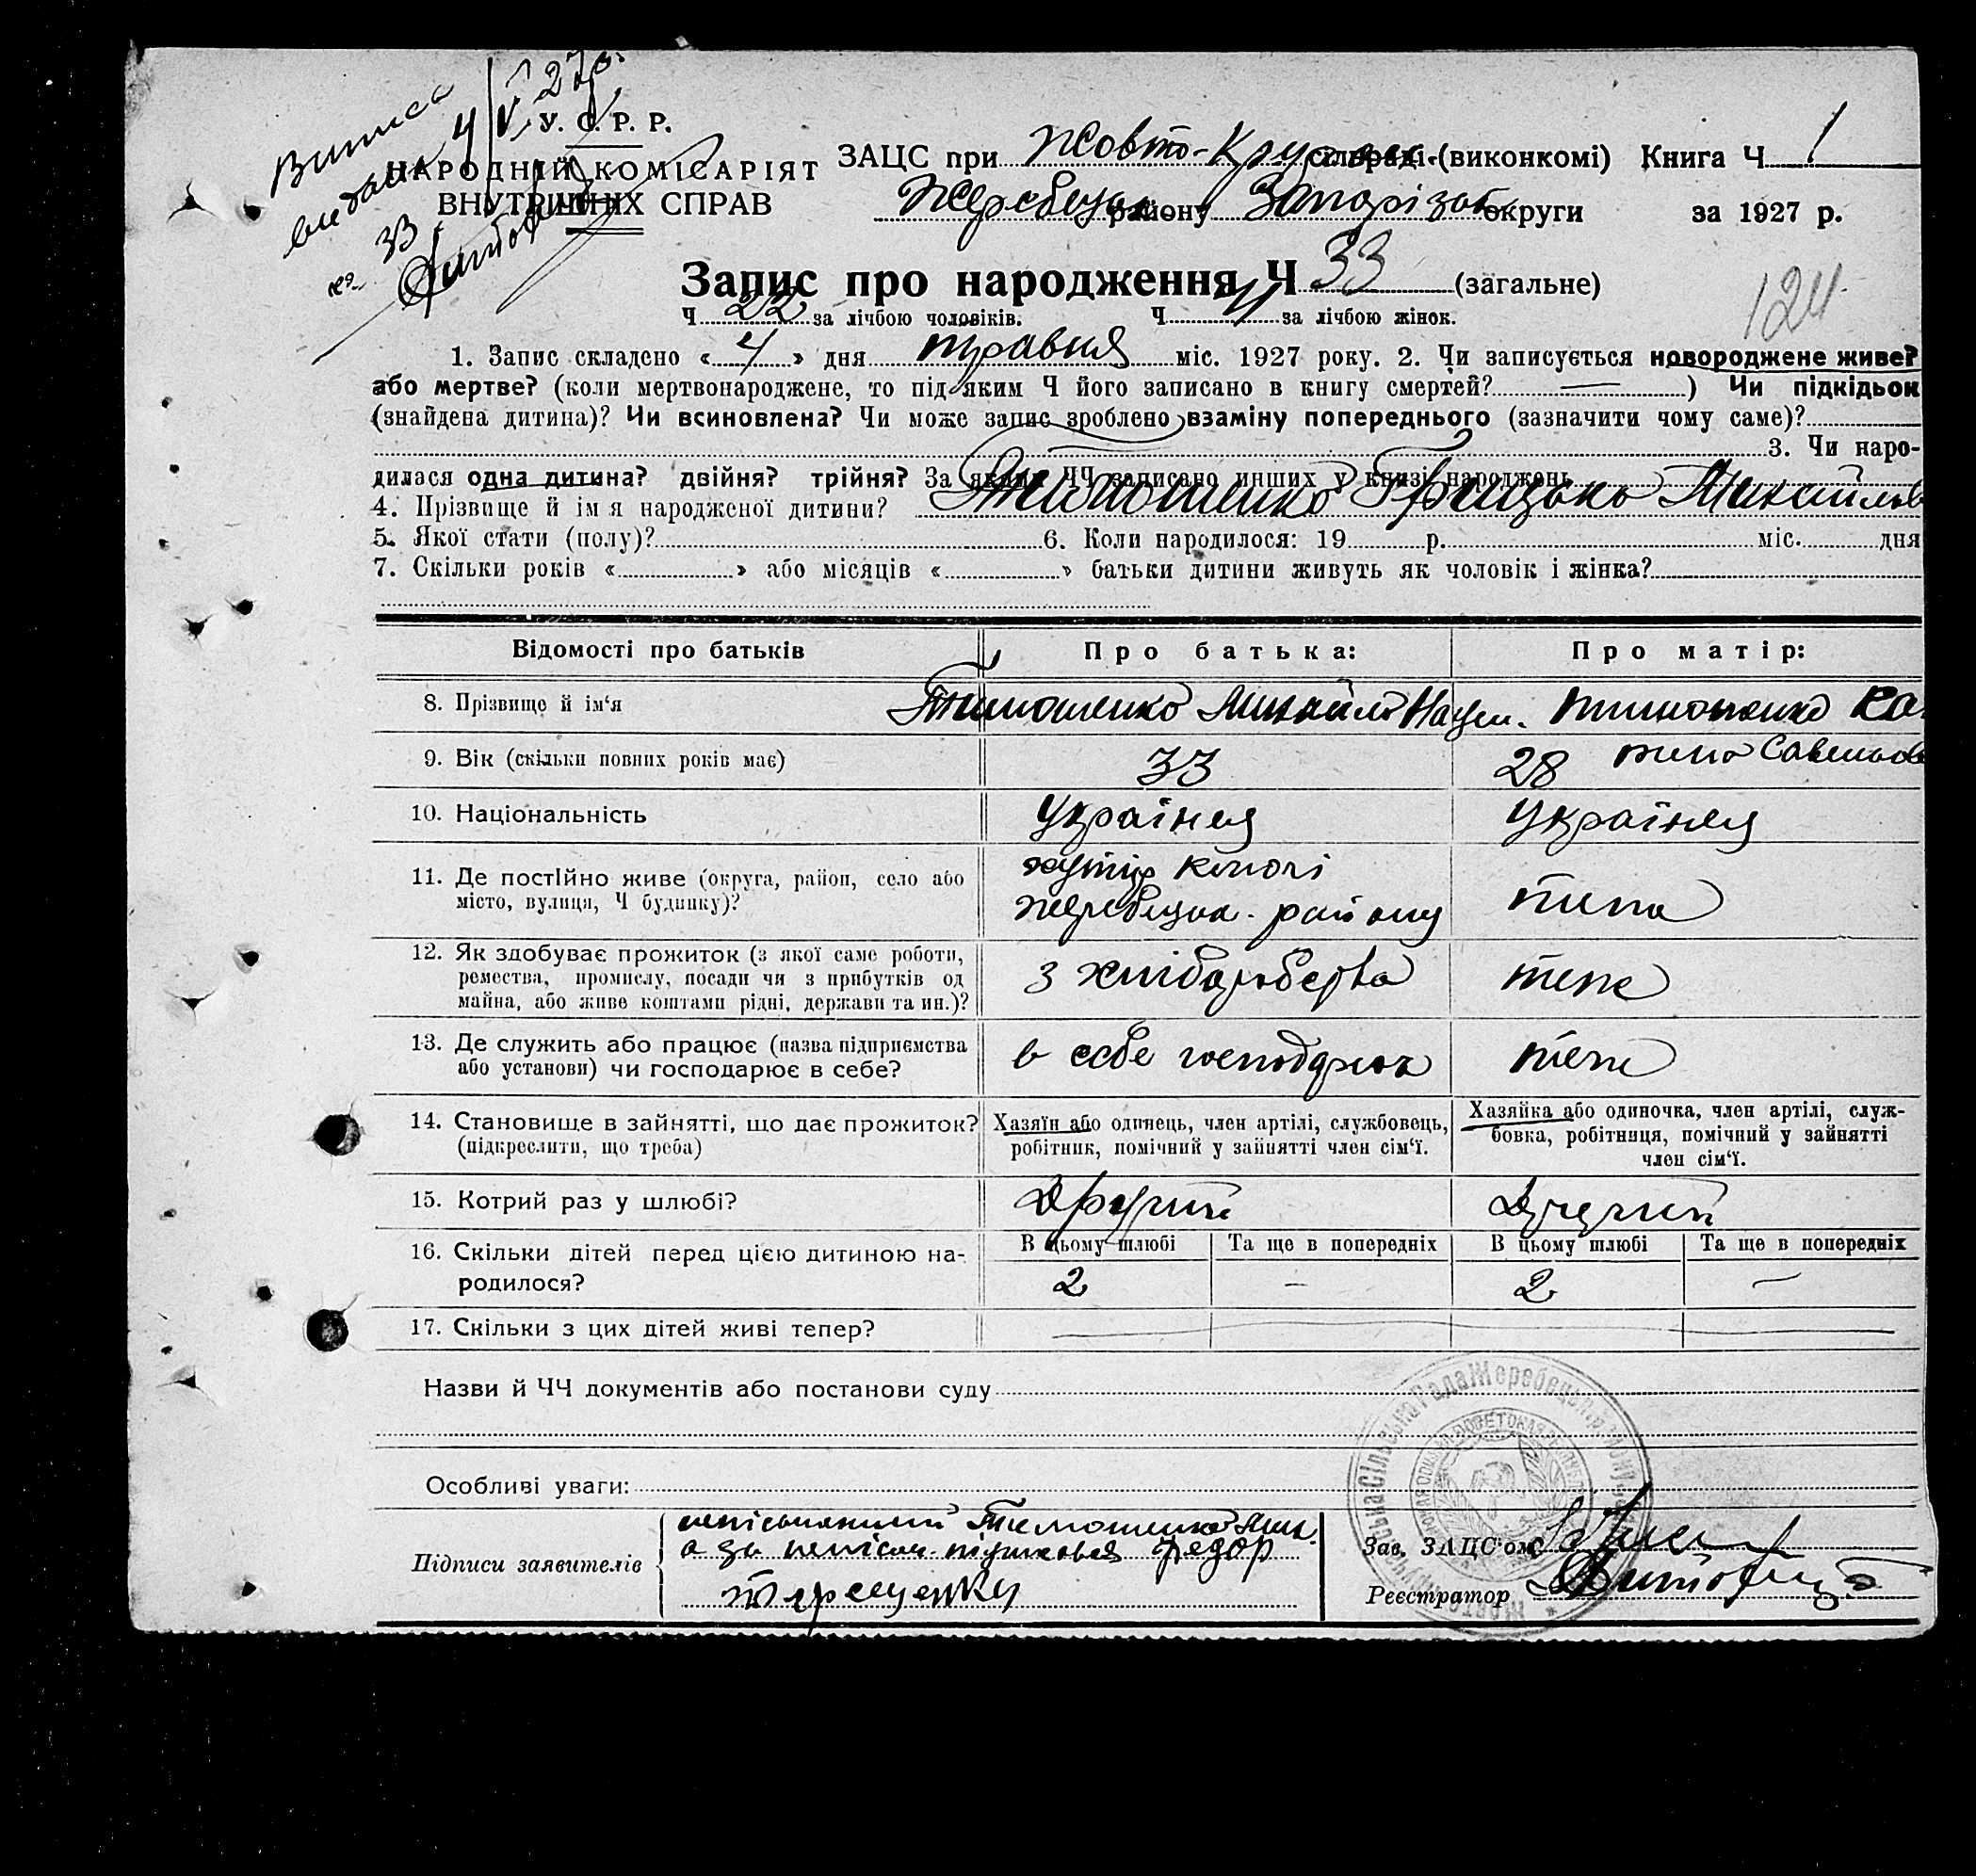 Випись
видана 4/V 27 р.
за № 33
У. С. Р. Р.
НАРОДНІЙ КОМІСАРІЯТ
ВНУТРІШНІХ СПРАВ
ЗАЦС при Жовто-Круч. сільраді-(виконкомі) Книга Ч 1
Жеребецьк. району Запорізьк округи за 1927 р.
Запис про народження Ч 33 (загальне)
124
Ч 22 за лічбою чоловіків. Ч за лічбою жінок.
1. Запис складено «4» дня травня міс. 1927 року. 2. Чи записується новороджене живе?
або мертве? (коли мертвонароджене, то під яким Ч його записано в книгу смертей? — ) Чи підкідьок
(знайдена дитина)? Чи всиновлена? Чи може запис зроблено взаміну попереднього (зазначити чому саме)?
3. Чи наро-
дилася одна дитина? двійня? трійня? За якими ЧЧ записано инших у книзі народжень
4. Прізвище й ім я народженої дитини? Тимошенко Грицько Михайлов
5. Якої стати (полу)? 6. Коли народилося: 19 р. міс. дня
7. Скільки років « » або місяців « » батьки дитини живуть як чоловік і жінка?
Відомості про батьків Про батька: Про матір:
8. Прізвище й ім‘я Тимошенко Михайло Наум. Тимошенко Ка
9. Вік (скільки повних років має) 33 28 Савельов
10. Національність Українец Українец
11. Де постійно живе (округа, район, село або хутір
місто, вулиця, Ч будинку)? Жеребецьк. району типа
12. Як здобуває прожиток (з якої саме роботи,
ремества, промислу, посади чи з прибутків од з хліборобства теж
майна, або живе коштами рідні, держави та ин.)?
13. Де служить або працює (назва підприємства в себе господрює теж
або установи) чи господарює в себе?
14. Становище в зайнятті, що дає прожиток? Хазяїн або одинець, член артілі, службовець, Хазяйка або одиночка, член артілі, служ-
(підкреслити, що треба) робітник, помічний у зайнятті член сім‘ї. бовка, робітниця, помічний у зайнятті
член сім‘ї.
15. Котрий раз у шлюбі? Другий Другий
16. Скільки дітей перед цією дитиною на- В цьому шлюбі Та ще в попередніх В цьому шлюбі Та ще в попередніх
родилося? 2 – 2 –
17. Скільки з цих дітей живі тепер?
Назви й ЧЧ документів або постанови суду
Особливі уваги:
неписьменний Тимошенко Мих.
Підписи заявителів а за непісм. Федор
Терещенко
Зав. ЗАЦС‘ом
Реєстратор